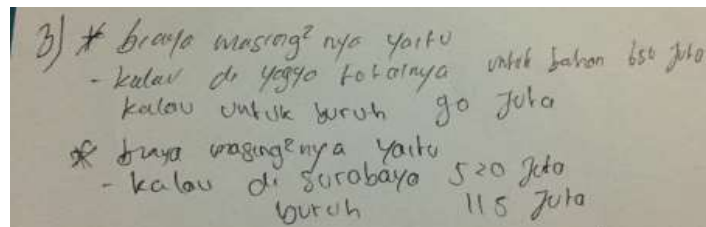 3) * biaya masing² nya yaitu
- kalau di yogya totalnya untuk bahan 650 juta
kalau untuk buruh 90 Juta
* biaya masing²nya yaitu
- kalau di surabaya 520 Juta
buruh 115 Juta